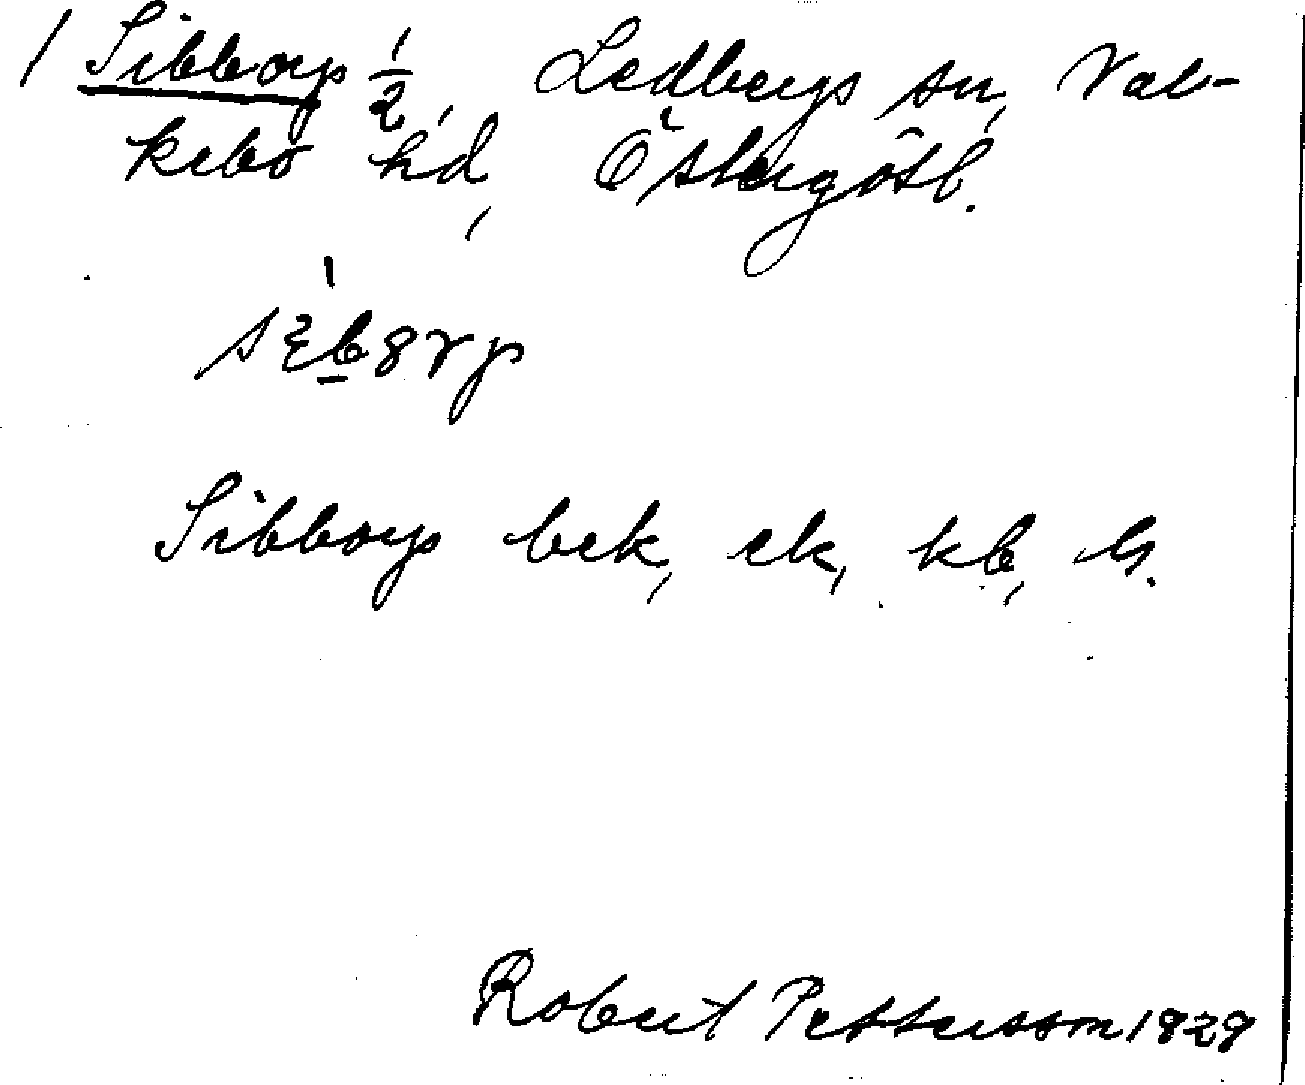 / Sibborp 1/2, Ledbergs sn, Val-
kebo hd, Östergötl.
Sibborp bek, ek, kb, G.
Robert Pettersson 1929